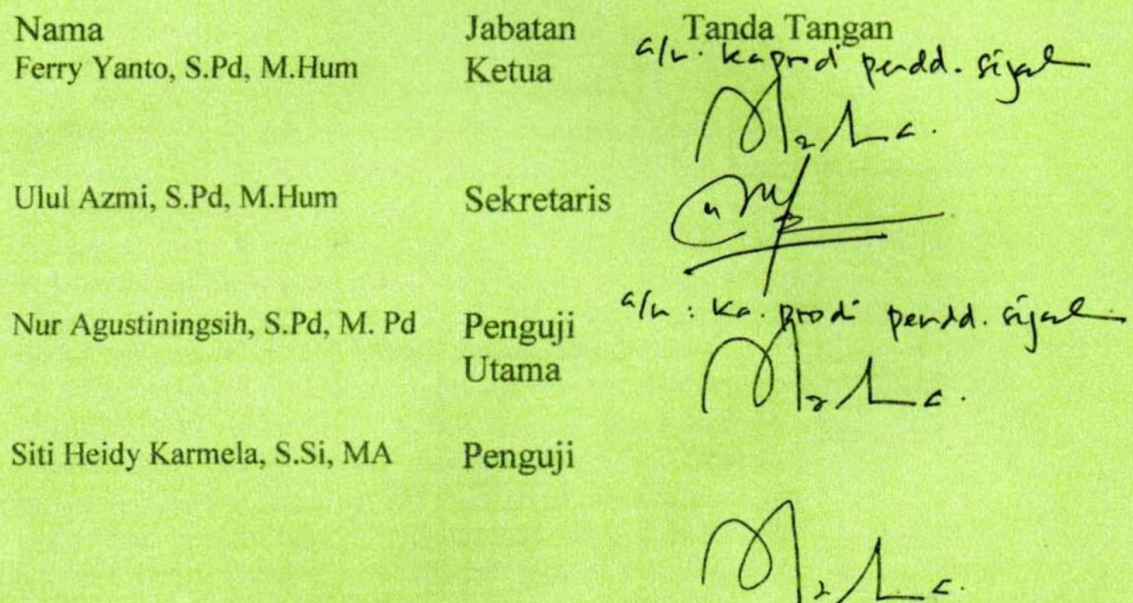 Nama Jabatan Tanda Tangan
Ferry Yanto, S.Pd, M.Hum Ketua a/n. kaprodi pendd.
Ulul Azmi, S.Pd, M.Hum Sekretaris
Nur Agustiningsih, S.Pd, M. Pd Penguji a/n : ka. prodi pendd.
Utama
Siti Heidy Karmela, S.Si, MA Penguji